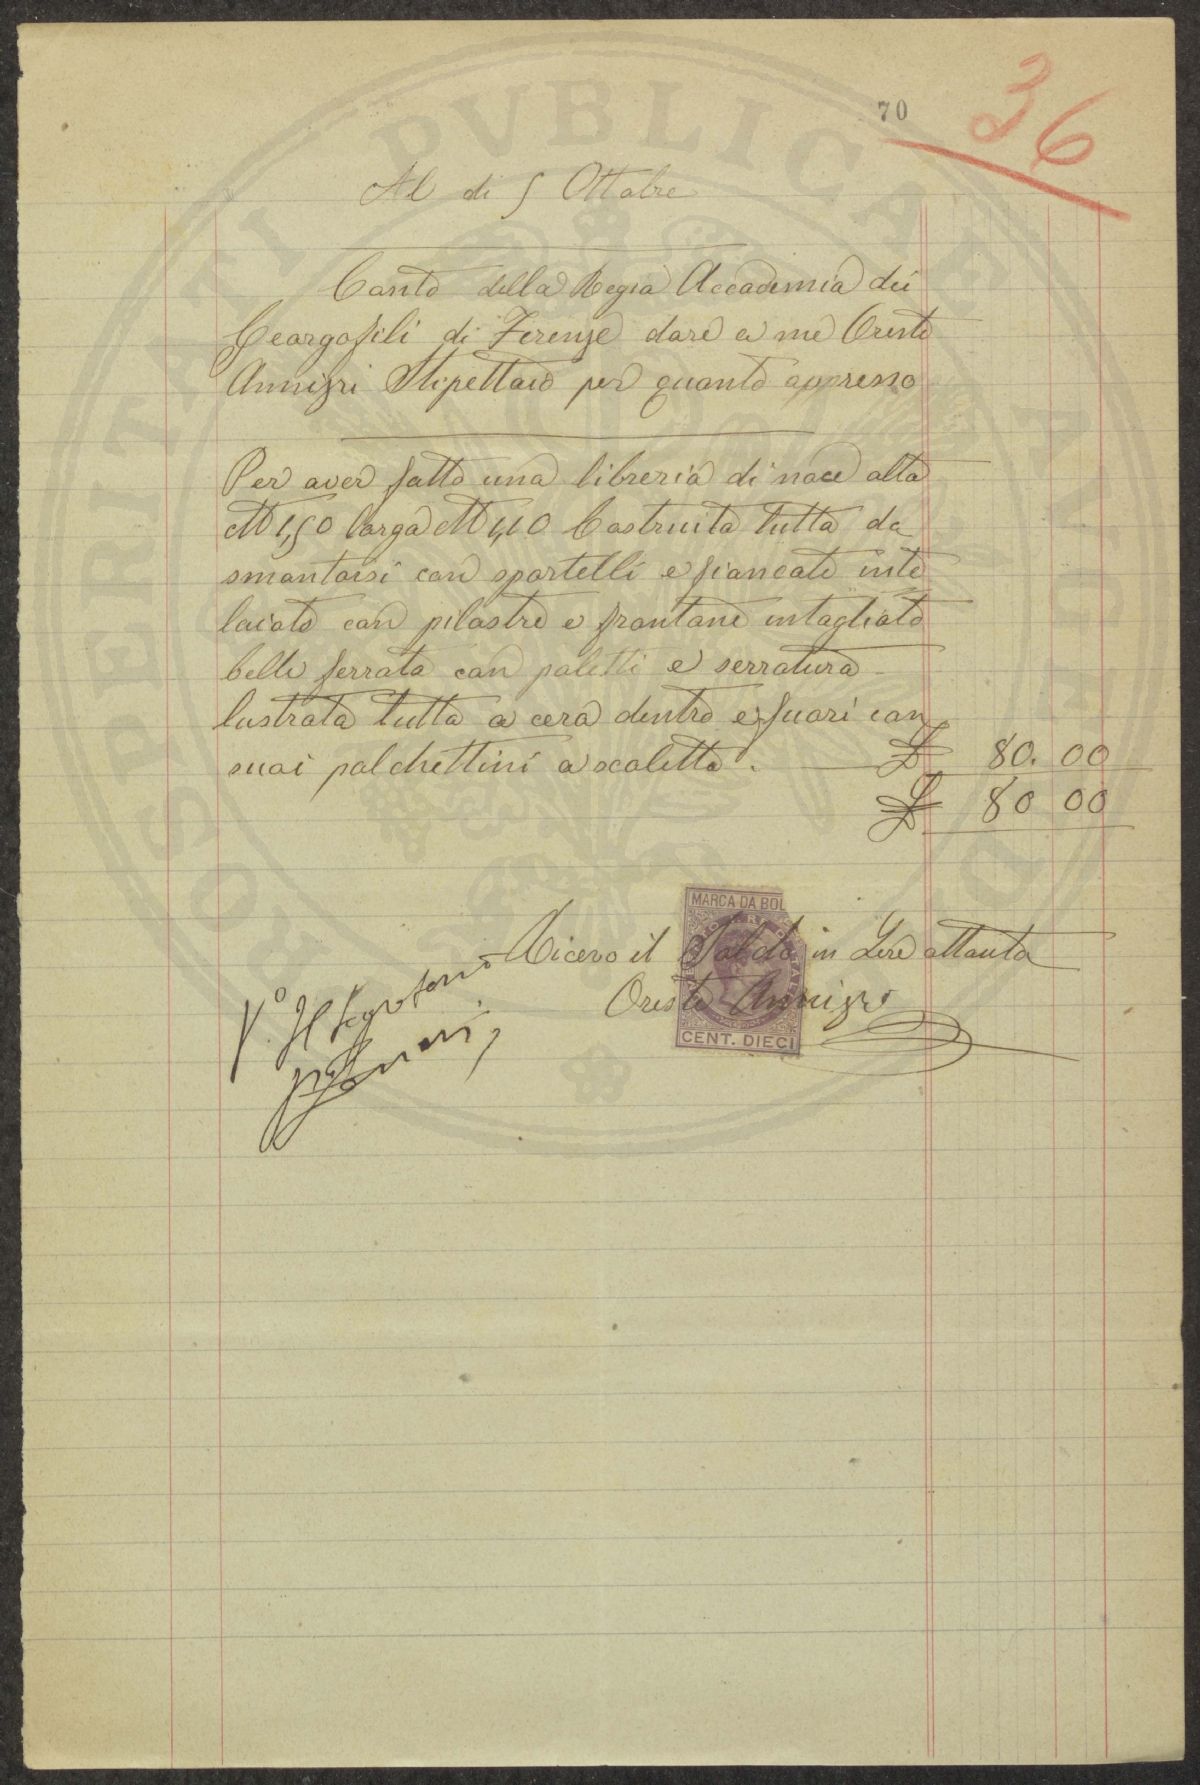 70
36
Al di 5 Ottobre
Conto della Regia Accademia dei
Georgofili di Firenze dare a me Oreste
Annizri Stipettaio per quanto appresso
Per aver fatto una libreria di noce alta
M 1,50 larga M 1,10 Costruita tutta da
smontarsi con sportelli e fiancate inte
laiate con pilastri e frontone intagliato
belle ferrata con paletti e serratura
lustrata tutta a cera dentro e fuori con
suoi palchettini a scaletta. £ 80.00
£ 80 00
MARCA DA BOL
Ricevo il Saldo in Lire ottanta
Oreste Annizri
CENT. DIECI
V.° Il Segretario
PROSPERITATI PVBLICAE AVGENDAE